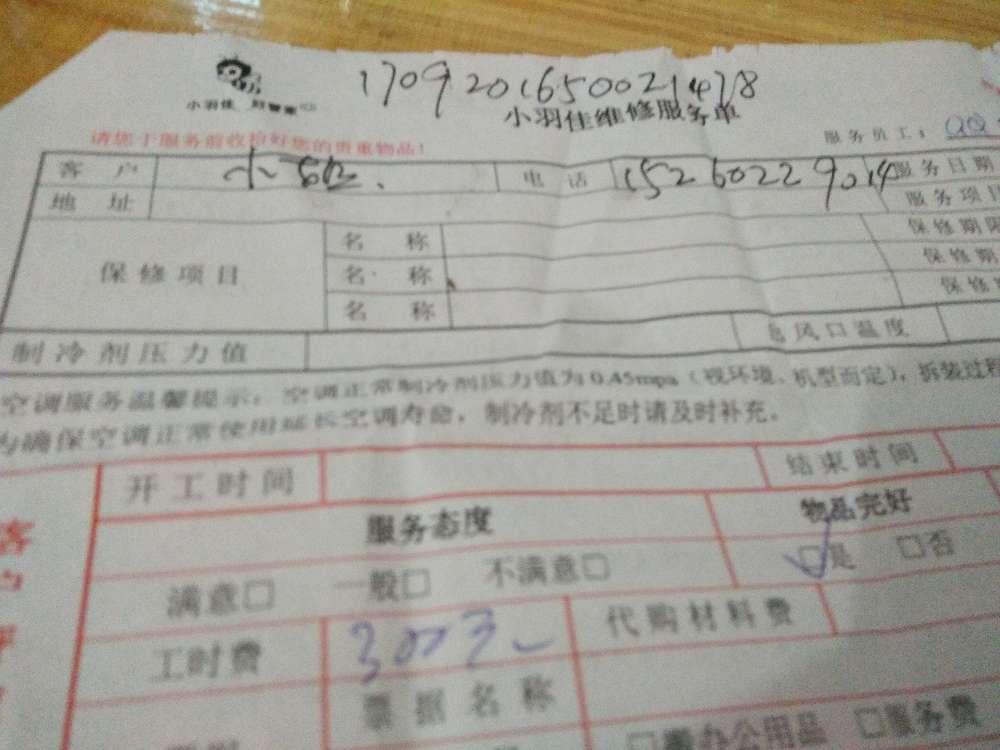 1709201650021478
小羽佳 好管家
小羽佳维修服务单
请您于服务前收拾好您的贵重物品!
服务员工:
客户 电话 15260229014 服务日期
地址 服务项目
保修项目 名称 保修期限
名称 保修期
名称 保修
制冷剂压力值 风口温度
空调服务温馨提示:空调正常制冷剂压力值为0.45mpa(视环境、机型而定),拆装过程
为确保空调正常使用延长空调寿命,制冷剂不足时请及时补充。
开工时间 结束时间
服务态度 物品完好
满意□ 一般□ 不满意□ ☑是 □否
工时费 代购材料费
票据名称
办公用品 □服务费